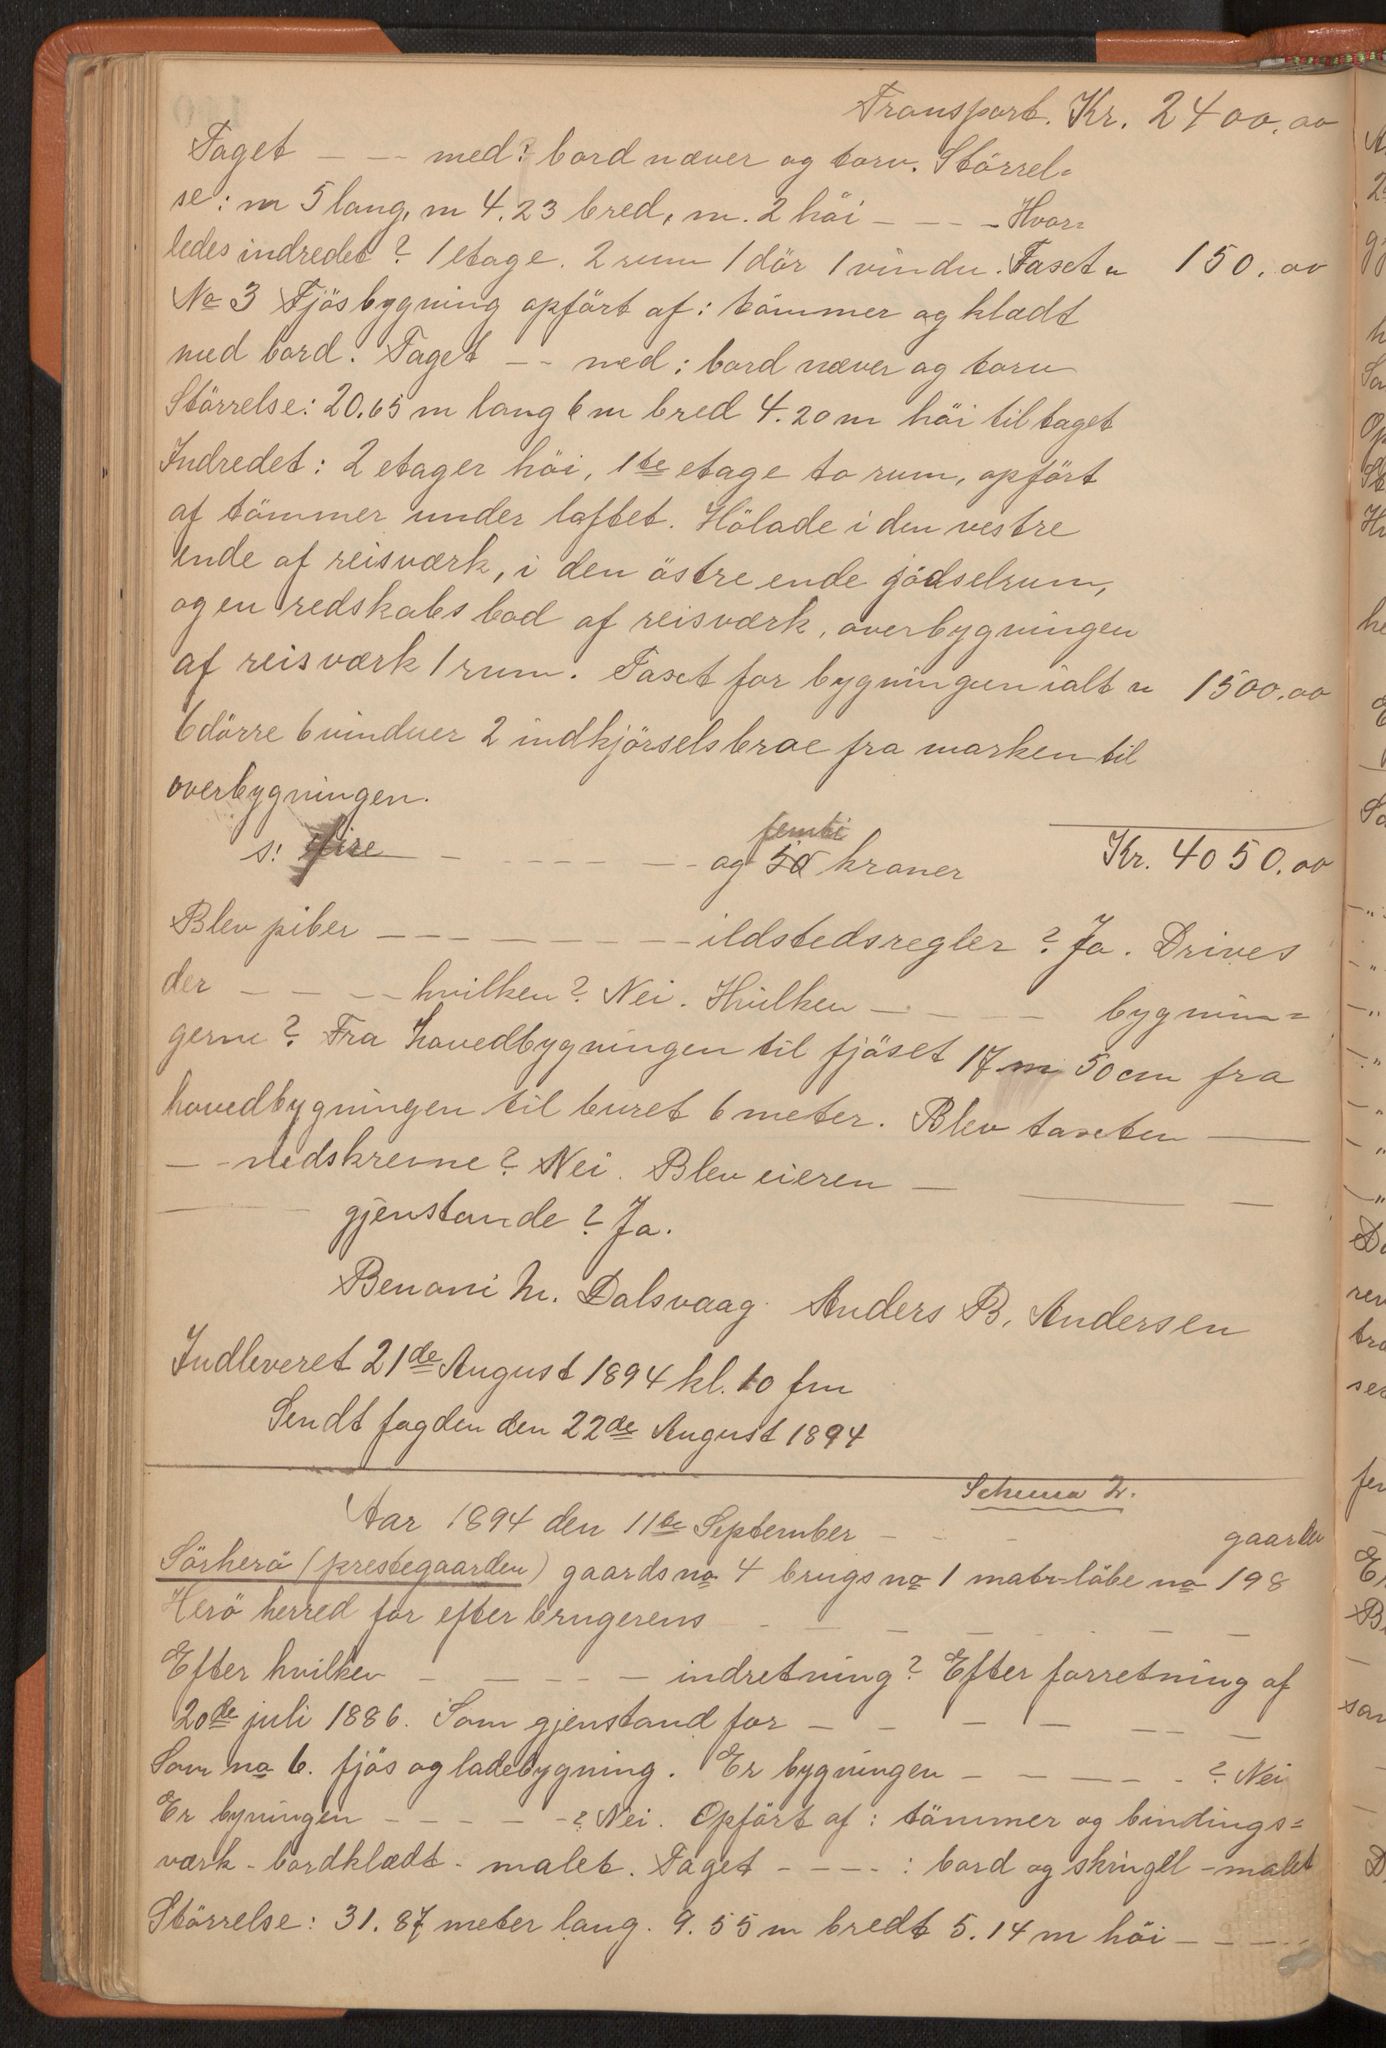 Transport. Kr. 2400.00
Taget - - - med: bord næver og torv. Störrel=
se: m 5 lang, m 4.23 bred, m. 2 höi - - - - Hvor=
ledes indredet? 1 etage. 2 rum 1 dör 1 vindu. Taxet " 150.00
No 3 Fjösbygning opfört af: tömmer og klædt
med bord. Taget - - med: bord næver og torv
Störrelse: 20.65 m lang 6 m bred 4.20 m höi til taget
Indredet: 2 etager höi, 1te etage to rum, opfört
af tömmer under loftet. Hölade i den vestre
ende af reisværk, i den östre ende gjödselrum,
og en redskabsbod af reisværk, overbygningen
af reisværk 1 rum. Taxet for bygningen ialt " 1500.00
6 dörre 6 vinduer 2 indkjörselsbroe fra marken til
overbygningen.
femti
s! fire - - - - - - - og 50 kroner Kr. 4050.00
Blev piber - - - - - - - - ildstedsregler? Ja. Drives
der - - - - hvilken? Nei. Hvilken - - - - - bygnin=
gerne? Fra hovedbygningen til fjöset 17 m 50 cm fra
hovedbygningen til buret 6 meter. Blev taxten -
- - nedskrevne? Nei. Blev eieren - - -
- - gjenstande? Ja.
Benoni M. Dalsvaag. Anders B. Andersen
Indleveret 21de August 1894 kl. 10 fm
Sendt fogden den 22de August 1894
Schema 2.
Aar 1894 den 11te September - - - gaarden
Sörherö (prestegaarden) gaards no 4 brugs no 1 matr-löbe no 198
Herö herred for efter brugerens - - - - - - -
Efter hvilken - - - - - indretning? Efter forretning af
20de juli 1886. Som gjenstand for - - - - - - -
Som no 6. fjös og ladebygning. Er bygningen - - - - - - ? Nei
Er byningen - - - - - -? Nei. Opfört af: tömmer og bindings=
værk - bordklædt - malet. Taget - - - -: bord og skingel - malet
Störrelse: 31.87 meter lang. 9.55 m bredt 5.14 m höi - - - -